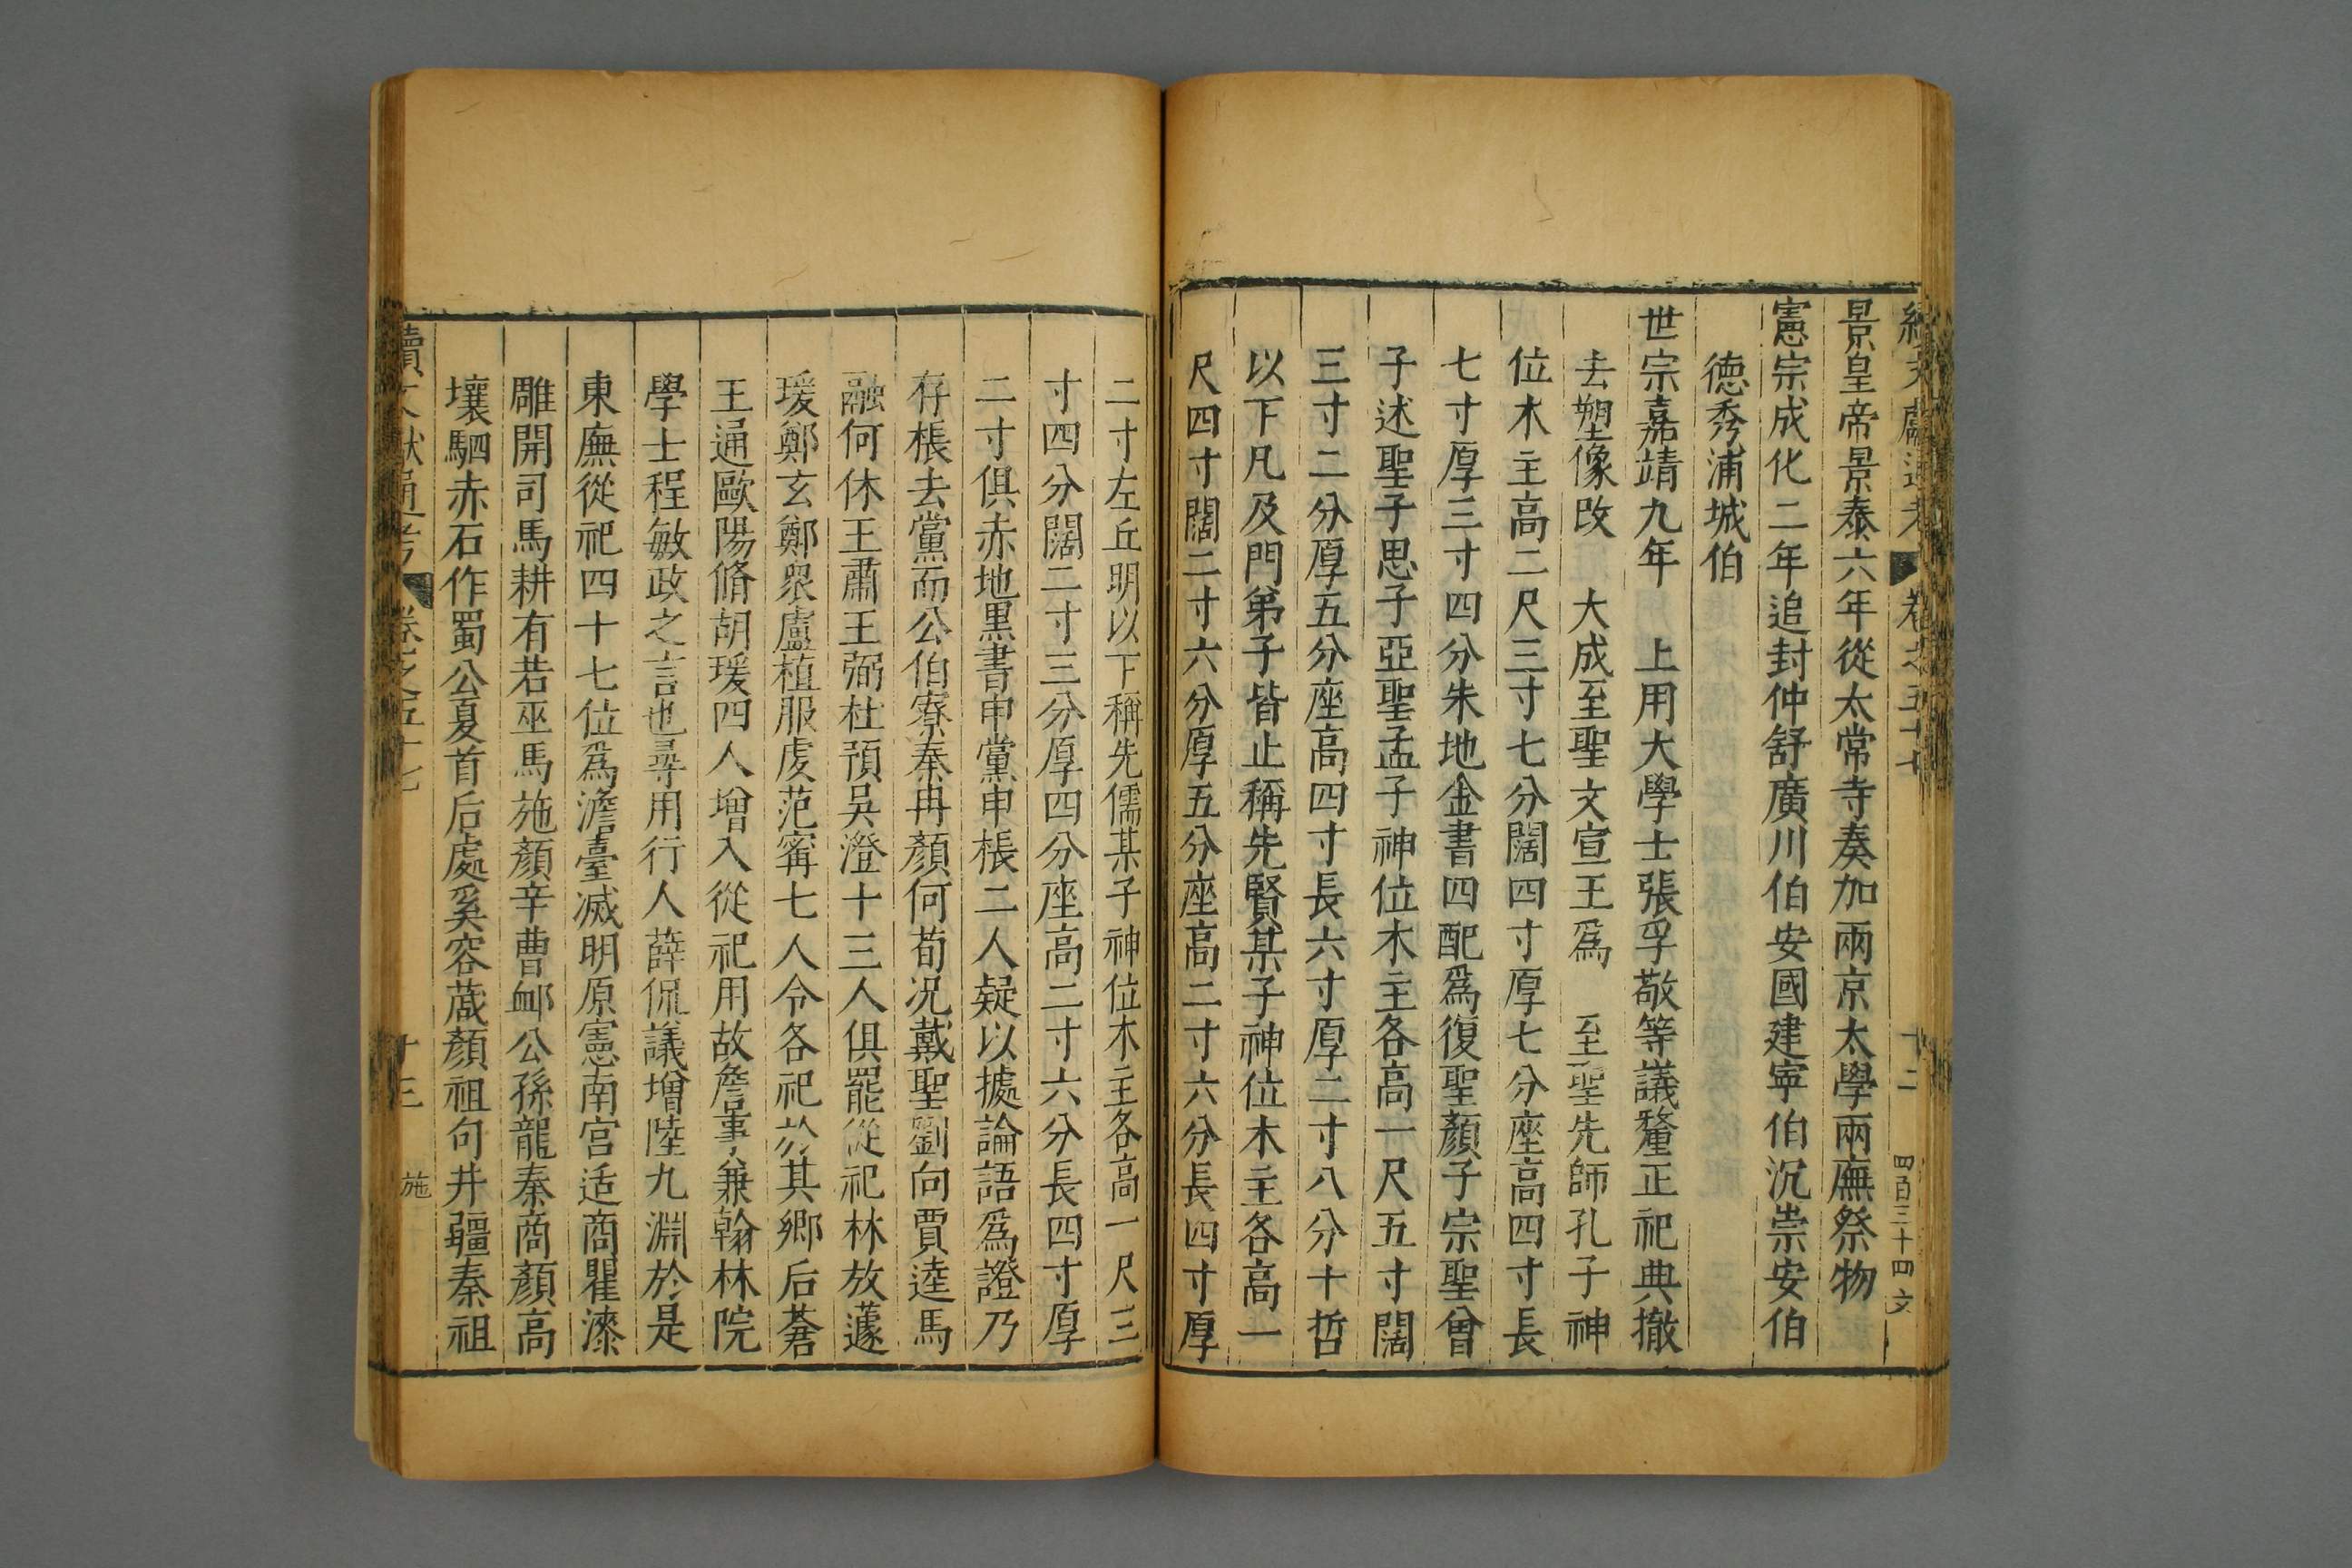 續文獻通考 卷之五十七 十二 四百三十四 文
景皇帝景泰六年從太常寺奏加兩京太學兩廡祭物
憲宗成化二年追封仲舒廣川伯安國建寧伯沉崇安伯
德秀浦城伯
世宗嘉靖九年 上用大學士張孚敬等議釐正祀典撤
去塑像改 大成至聖文宣王爲 至聖先師孔子神
位木主高二尺三寸七分闊四寸厚七分座高四寸長
七寸厚三寸四分朱地金書四配爲復聖顏子宗聖曾
子述聖子思子亞聖孟子神位木主各高一尺五寸闊
三寸二分厚五分座高四寸長六寸厚二寸八分十哲
以下凡及門弟子皆止稱先賢某子神位木主各高一
尺四寸闊二寸六分厚五分座高二寸六分長四寸厚
二寸左丘明以下稱先儒某子神位木主各高一尺三
寸四分闊二寸三分厚四分座高二寸六分長四寸厚
二寸俱赤地黑書申黨申棖二人疑以據論語爲證乃
存棖去黨而公伯寮秦冉顏何荀况戴聖劉向賈逵馬
融何休王肅王弼杜預吳澄十三人俱罷從祀林放蘧
瑗鄭玄鄭衆盧植服虔范寗七人令各祀於其鄉后蒼
王通歐陽脩胡瑗四人增入從祀用故詹事兼翰林院
學士程敏政之言也尋用行人薛侃議增陸九淵於是
東廡從祀四十七位爲澹臺滅明原憲南宫适商瞿漆
雕開司馬耕有若巫馬施顏辛曹䘏公孫龍秦商顏高
壤駟赤石作蜀公夏首后處奚容蒧顏祖句井疆秦祖
續文獻通考 卷之五十七 十三 施